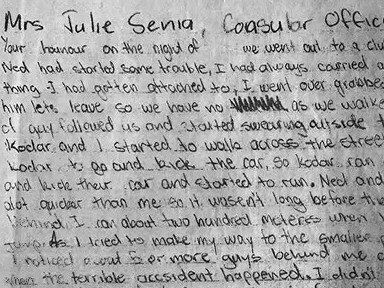 Mrs Julie Senia, Consular Offic
Your honour on the night of we went out to a clu
Ned had started some trouble, I had always carried a
thing I had gotten attached to, I went over grabbed
him lets leave so we have no as we walk
of guy followed us and started swearing outside t
Kodar, and I started to walk across the street
kodar to go and kick the car, so kodar ran
and kick their car and started to run. Ned and
alot quicker than me so it wasen't long before th
behind, I ran about two hundred meteres when
jump. As I tried to make my way to the smaller
I noticed about or more guys behind me
when the terrible accsident happened. I didn't